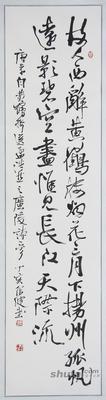 故人西辭黃鶴樓烟花三月下揚州孤帆
遠影碧空盡惟見長江天際流
黃鶴樓送孟浩然之廣陵詩